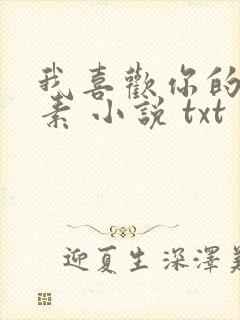 我喜歡你的
素 小說 txt
迎夏生 深澤美